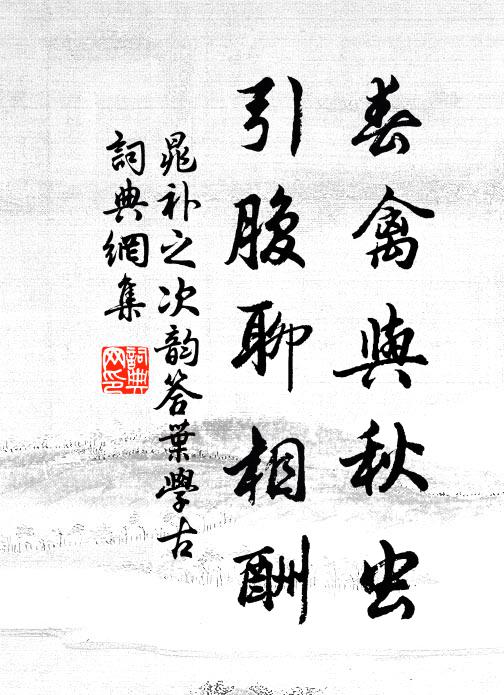 春禽與秋虫
引腹聊相酬
晁补之次韵答葉學古
詞典網集
詞典网印